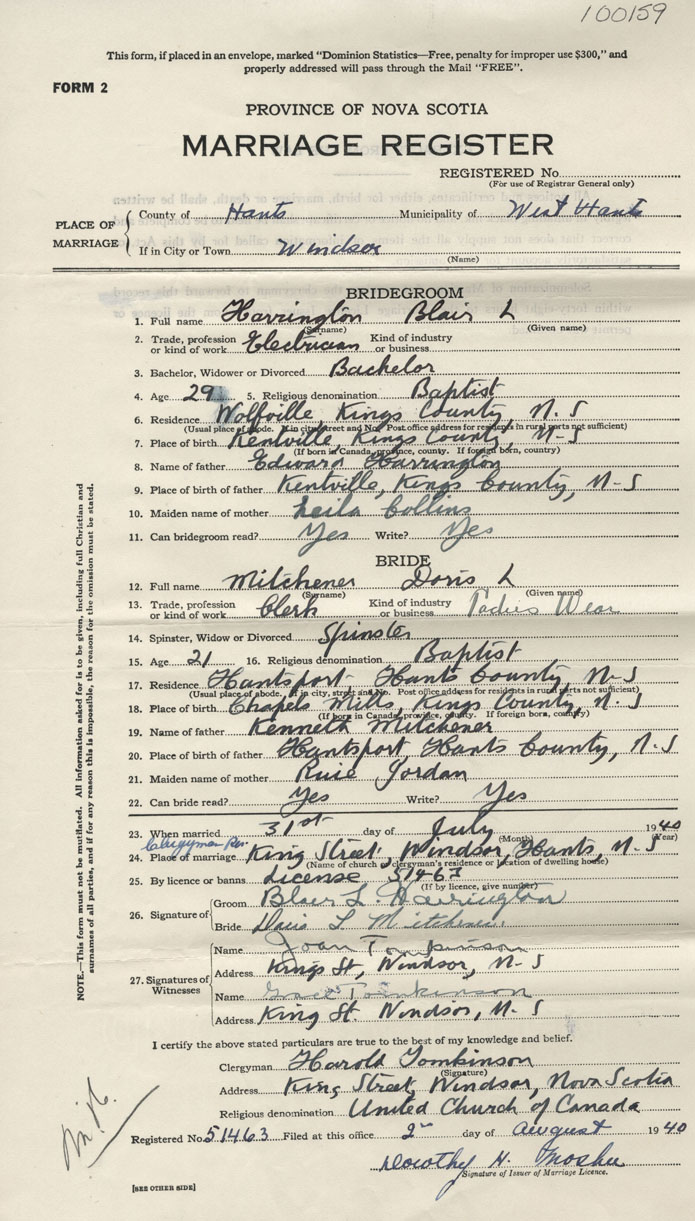 100159
This form, if placed in an envelope, marked "Dominion Statistics—Free, penalty for improper use $300," and
properly addressed will pass through the Mail "FREE".
FORM 2
PROVINCE OF NOVA SCOTIA
MARRIAGE REGISTER
REGISTERED No.
(For use of Registrar General only)
PLACE OF MARRIAGE
County of Hants Municipality of West Hants
If in City or Town Windsor
(Name)
BRIDEGROOM
1. Full name Harrington Blair L
(Surname) (Given name)
2. Trade, profession or kind of work Electrician Kind of industry or business
3. Bachelor, Widower or Divorced Bachelor
4. Age 29 5. Religious denomination Baptist
6. Residence Wolfville, Kings County, N. S
(Usual place of abode. If in city, street and No. Post office address for residents in rural parts not sufficient)
7. Place of birth Kentville, Kings County, N-S
(If born in Canada, province, county. If foreign born, country)
8. Name of father Edward Harrington
9. Place of birth of father Kentville, Kings County, N-S
10. Maiden name of mother Leila Collins
11. Can bridegroom read? Yes Write? Yes
BRIDE
12. Full name Mitchener Doris L
(Surname) (Given name)
13. Trade, profession or kind of work Clerk Kind of industry or business Ladies Wear
14. Spinster, Widow or Divorced Spinster
15. Age 21 16. Religious denomination Baptist
17. Residence Hantsport, Hants County, N-S
(Usual place of abode. If in city, street and No. Post office address for residents in rural parts not sufficient)
18. Place of birth Chapels Mills, Kings County, N. S
(If born in Canada, province, county. If foreign born, country)
19. Name of father Kenneth Mitchener
20. Place of birth of father Hantsport, Hants County, N. S
21. Maiden name of mother Jordan
22. Can bride read? Yes Write? Yes
23. When married 31st day of July 1940
(Month) (Year)
Clergyman Res.
24. Place of marriage King Street, Windsor, Hants, N. S
(Name of church or clergyman's residence or location of dwelling house)
25. By licence or banns License 51463
(If by licence, give number)
26. Signature of
Groom Blair L. Harrington
Bride Doris L Mitchener
27. Signatures of Witnesses
Name Joan Tomkinson
Address Kings St, Windsor, N-S
Name Grace Tomkinson
Address King St. Windsor, N. S
I certify the above stated particulars are true to the best of my knowledge and belief.
Clergyman Harold Tomkinson
(Signature)
Address King Street, Windsor, Nova Scotia
Religious denomination United Church of Canada
Registered No. 51463 Filed at this office 2 day of August 1940
Dorothy H.
Signature of Issuer of Marriage Licence.
[SEE OTHER SIDE]
NOTE.—This form must not be mutilated. All information asked for is to be given, including full Christian and
surnames of all parties, and if for any reason this is impossible, the reason for the omission must be stated.